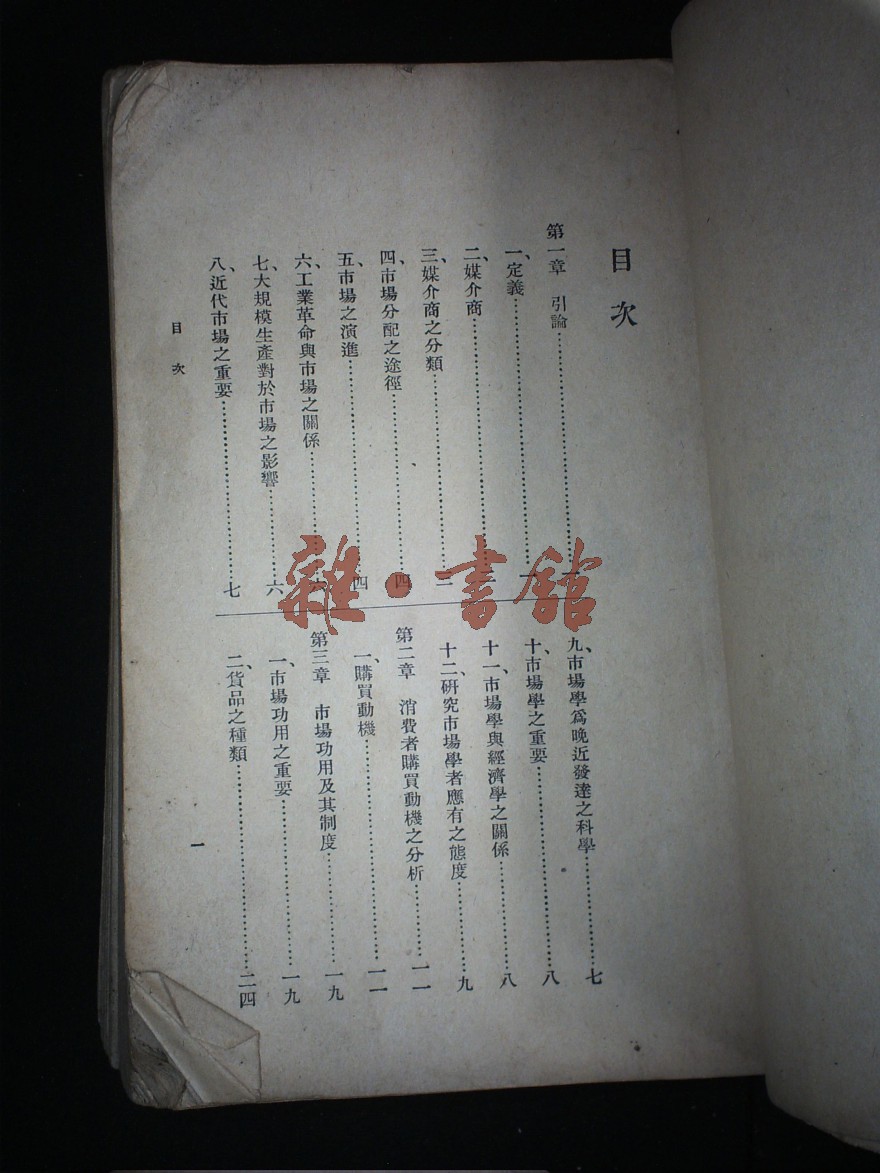 目次
第一章 引論……一
一、定義……一
二、媒介商……
三、媒介商之分類……二
四、市場分配之途徑……四
五、市場之演進……四
六、工業革命與市場之關係……六
七、大規模生產對於市場之影響……六
八、近代市場之重要……七
九、市場學爲晚近發達之科學……七
十、市場學之重要……八
十一、市場學與經濟學之關係……八
十二、研究市場學者應有之態度……九
第二章 消費者購買動機之分析……一一
一、購買動機……一一
第三章 市場功用及其制度……一九
一、市場功用之重要……一九
二、貨品之種類……二四
目次
一
雜·書館